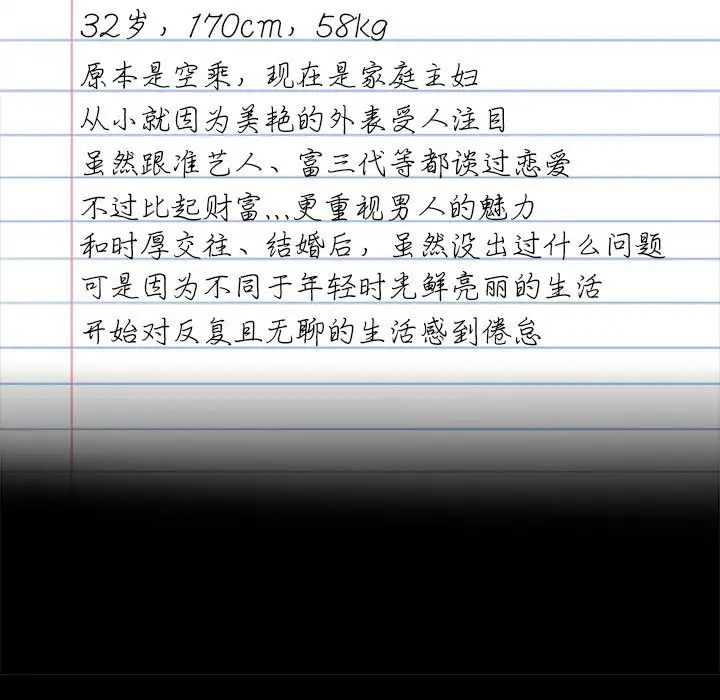 32岁，170cm，58kg
原本是空乘，现在是家庭主妇
从小就因为美艳的外表受人注目
虽然跟准艺人、富三代等都谈过恋爱
不过比起财富...更重视男人的魅力
和时厚交往、结婚后，虽然没出过什么问题
可是因为不同于年轻时光鲜亮丽的生活
开始对反复且无聊的生活感到倦怠